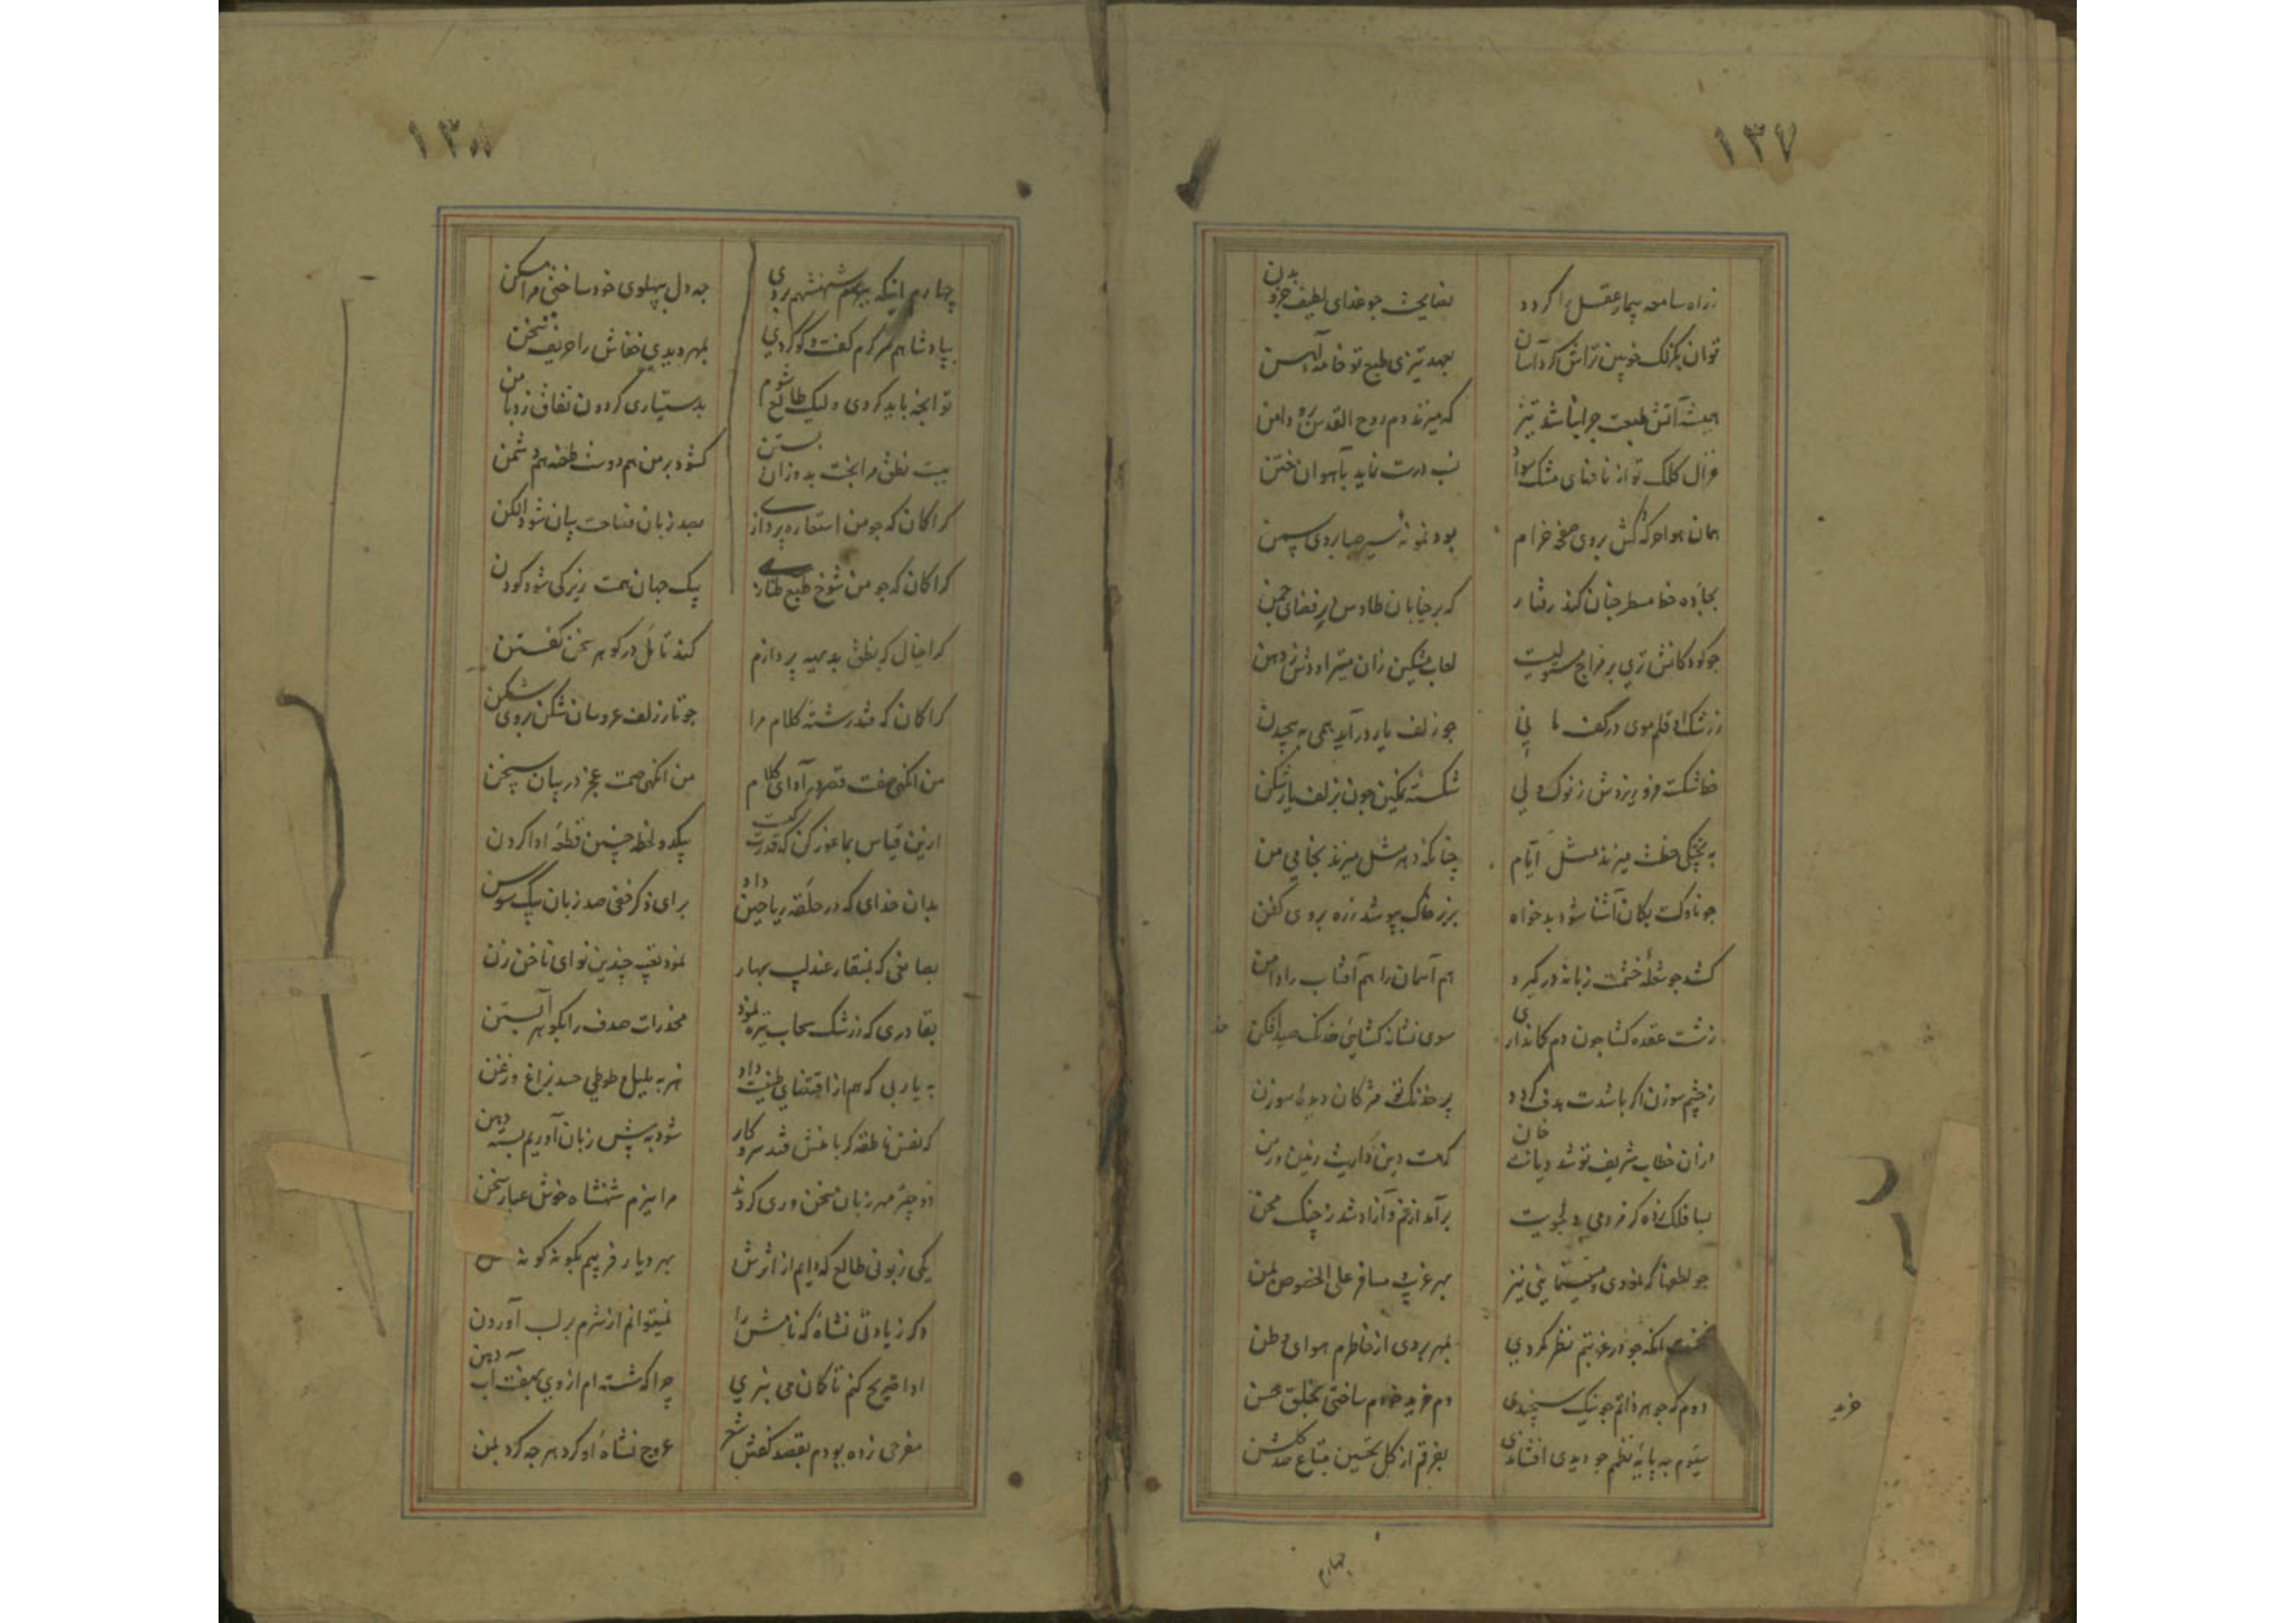 ۱۳۷
ز راه سامعه بیمار عقل را کردد نصایحت جو غذای لطیف جزو بدن
توان بکزلک خوبین تراش کرد آسان بعهد تیزی طبع تو خامه آهن
همیشه آتش طبعت جرا نباشد تیز که میزند دم روح القدس برو دامن
غزال کلک تو از نافهای مشک سواد نسب درست نماید بآهوان ختن
همان هوا حرکتش بروی صفحه خرام بود نمونه سیر صبا بروی سمن
بجاده خط مسطر جنان کند رفتار که بر خیابان طاوس بر فضای جمن
جو کودکانش تری بر مزاج مستولیست لعاب مشکین زان میتراودش ز دهن
ز رشک او قلم موی در کف مانی جو زلف یار درآید همی به پیچیدن
خط شکسته فرو ریزدش ز نوک ولی شکسته نمکین جون بزلف یار شکن
به پختکی خطت میزند مثل ایام چنانکه دهر مثل میزند بخامی من
جو ناوکت بکمان آشنا شود بدخواه بزیر خاک بپوشد زره بروی کفن
کشد جو شعله خشمت زبانه در کیرد هم آسمان را هم آفتاب را دامن
ز شست عقده کشا جون دم کمانداری سوی نشانه کشایی خدنک صید افکن
ز چشم سوزن اکر باشدت هدف کردد پر خدنک تو مژکان دیده سوزن
از ان خطاب شریف تو شد دیانت خان که هست دین و دیانت رهین و
بسا فلک زده کز مردمی و دلجویت برآمد از غم و آزاد شد ز چنک محن
جو لطفها که نمودی و مینمایی نیز بهر غریب و مسافر علی الخصوص بمن
نخست آنکه جو در غربتم نظر کردی بمهر بردی از خاطرم هوای وطن
دوم که جوهر ذاتم جو نیک سنجیدی دم خرید خودم ساختی بخلق حسن
سیوم به پایه نظمم جو دیدی افشاندی بفرقم از کل تحسین متاع صد کلشن
خرید
چهارم
۱۳۸
چهارم اینکه ببزم شهنشهم بردی جه دل بپهلوی خود ساختی مرا مسکن
بپادشاهم سرکرم کفت و کو کردی بمهر دیدی خفاش را حریف سخن
تو انجه باید کردی ولیک طالع شوم بدستیاری کردون نفاق زد با من
ببست نطق مرا بخت بد وزان بستن کشود بر من هم دوست طعنه هم دشمن
کرا کمان که جو من استعاره پردازی بصد زبان فصاحت بیان شود الکن
کرا کمان که جو من شوخ طبع طناری بیک جهان همت زیرکی شود کودن
کرا خیال که نطق بدیهه پردازم کند تامل در کوهر سخن کفتن
کرا کمان که فتد رشته کلام مرا جو تار زلف عروسان شکن بروی شکن
من انکهی صفت قصر در آدای کلام من انکهی صمت عجز در بیان سخن
ازین قیاس بما غور کن که قدرت کیت بیکدو لحظه چنین قطعه ادا کردن
بدان خدای که در حلقه ریاحین داد برای ذکر خفی صد زبان بیک سوسن
بصانعی که بمنقار عندلیب بهار نمود تعبیه چندین نوای ناخن زن
بقادری که ز رشک سحاب تیره نمود مخدرات صدف را بکوهر آبستن
به یاربی که هم از اقتضای طینت داد نه به بلبل و طوطی حسد بزاغ و زغن
که نفس ناطقه کر با منش فتد سر و کار شود به پیش زبان آوریم بسته دهن
دو چیز مهر زبان سخن وری کردند مرا ببزم شهنشاه خوش عیار سخن
یکی زبونی طالع که دایم از اثرش بهر دیار فریبم بکونه کونه
دکر زیادتی نشأه که نامش را نمیتوانم از شرم بر لب آوردن
ادا صریح کنم تا کمان می نبری چرا که شسته ام از وی بهفت آب دهن
مفرحی زده بودم بقصد کفتن شعر عروج نشاه او کرد هر جه کرد بمن